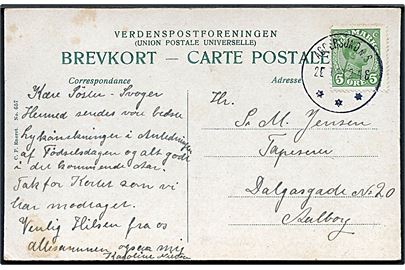 VERDENSPOSTFORENINGEN
(UNION POSTALE UNIVERSELLE)
BREVKORT — CARTE POSTALE
Correspondance
Adresse
DANMARK
5 ØRE 5
Kære Søster - Svoger
Hermed sendes vore bedste
Lykønskninger i Anledning
af Fødselsdagen og alt godt
i det kommende Aar.
Tak for Kortet som vi
har modtaget.
Venlig Hilsen fra os
allesammen
Hr.
S. M. Jensen
Tapetserer
Dalgasgade No 20
Aalborg
No. 657